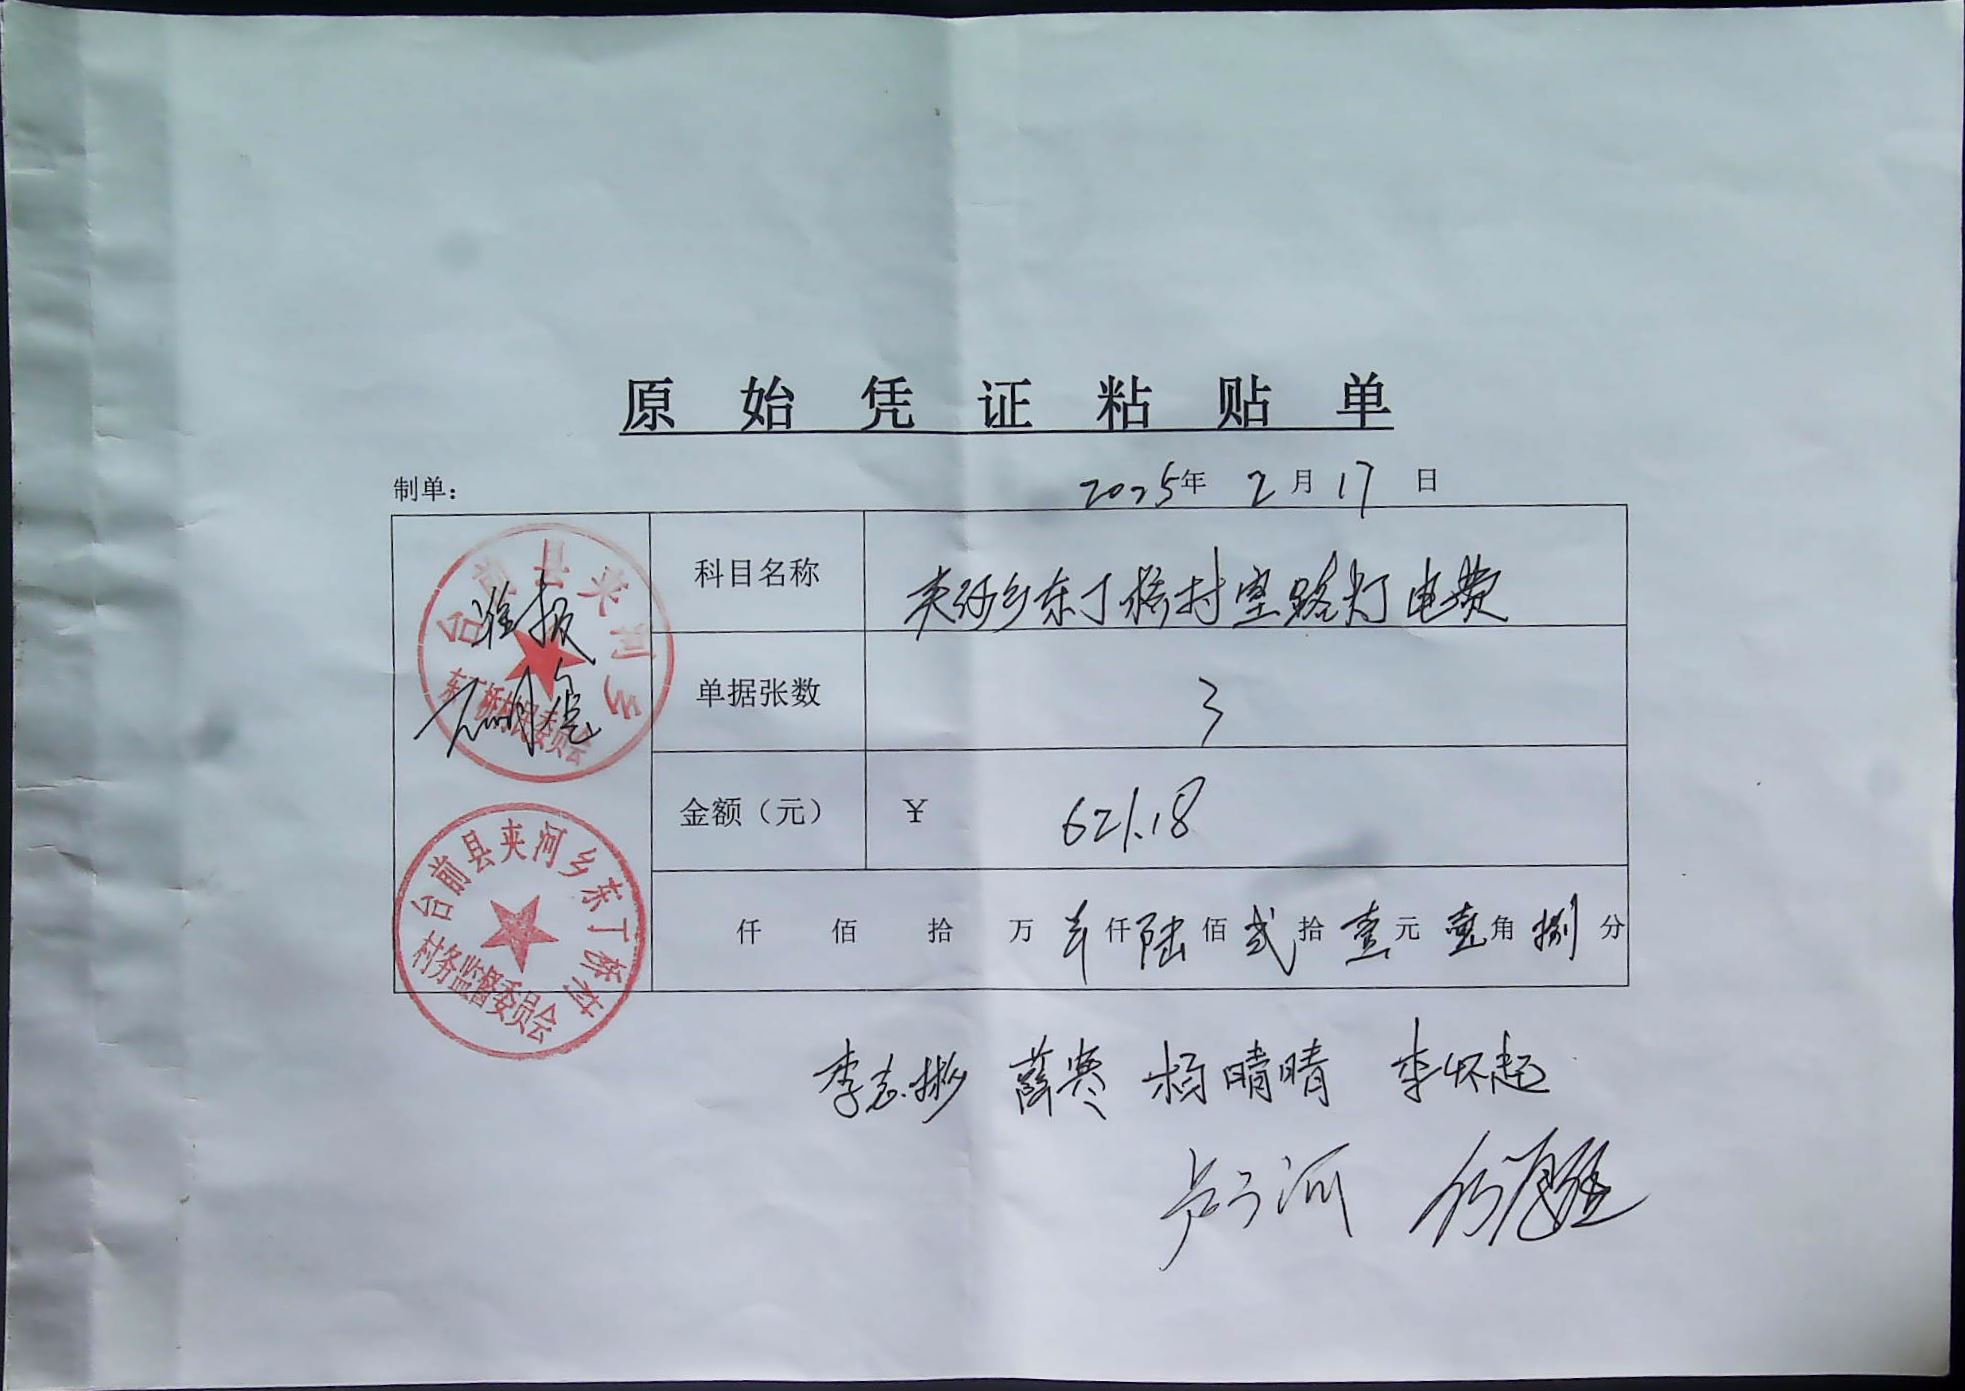 原始凭证粘贴单
制单：
2025年 2月17日
台前县夹河乡
东丁桥村民委员会
准报
科目名称
夹河乡东丁桥村室路灯电费
单据张数
3
金额（元）
¥ 621.18
仟 佰 拾 万 仟陆佰弍拾壹元壹角捌分
台前县夹河乡东丁桥村
村务监督委员会
李志彬 薛寒 杨晴晴 李怀起